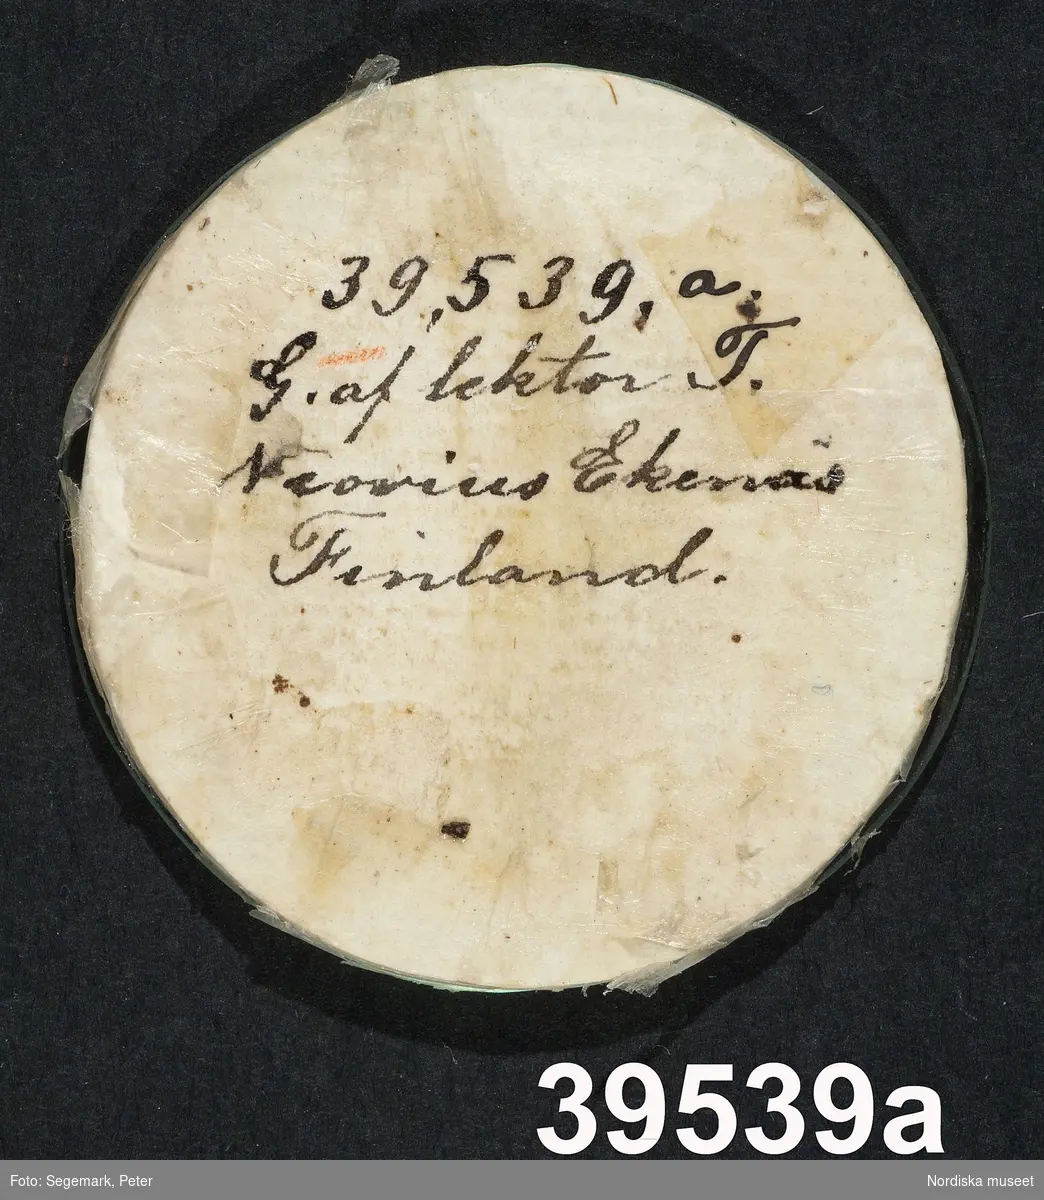 39,539, a.
G. af lektor T.
Neovius Ekenäs
Finland.
39539a
Foto: Segemark, Peter
Nordiska museet